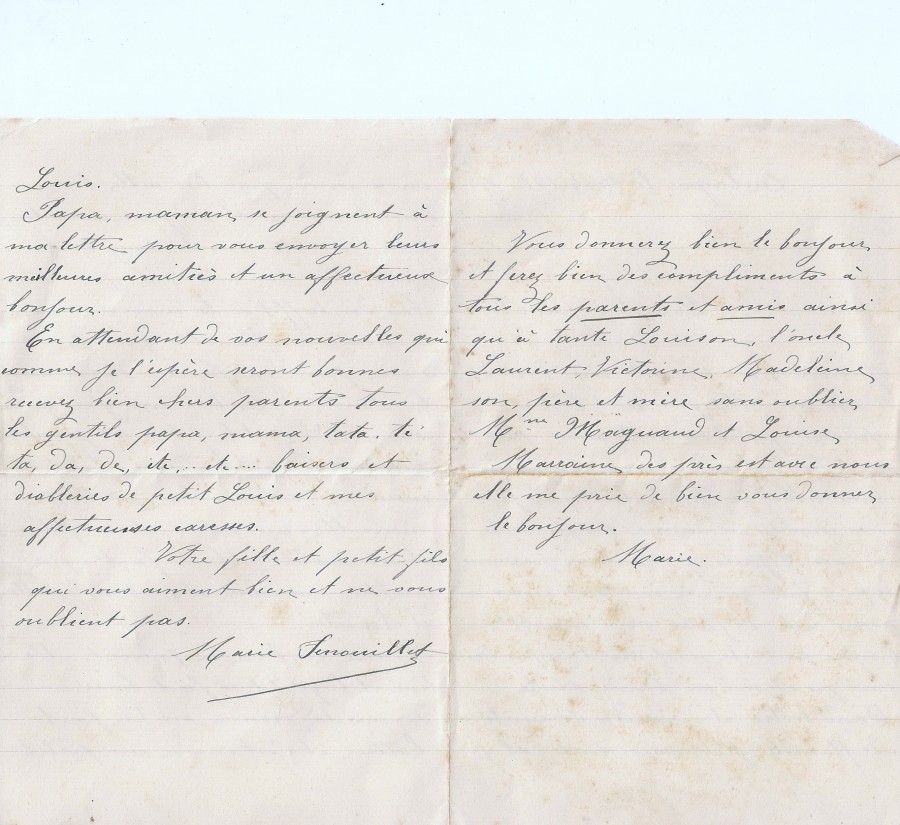 Louis.
Papa, maman, se joignent à
ma lettre pour vous envoyer leurs
meilleures amitiès et un affectueux
bonjour.
En attendant de vos nouvelles qui
comme, je l'espère seront bonnes
recevez bien chers parents tous
les gentils papa, mama, tata. té
ta, da, de, etc,.. etc... baisers et
diableries de petit Louis et mes
affectueuses caresses.
Votre fille et petit fils
qui vous aiment bien et ne vous
oublient pas.
Marie
Vous donnerez bien le bonjour,
et ferez bien des compliments à
tous les parents et amis ainsi
qu'à tante Louison, l'oncle
Laurent, Victorine, Madeleine,
son, père et mère sans oublier,
Mme Maguaud et Louise,
Marraine, des près est avec nous
elle me prie de bien vous donner,
le bonjour.
Marie.